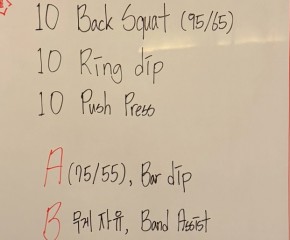 10 Back Squat (95/65)
10 Ring dip
10 Push Press
A (75/55), Bar dip
B 무게 자유, Band Assist